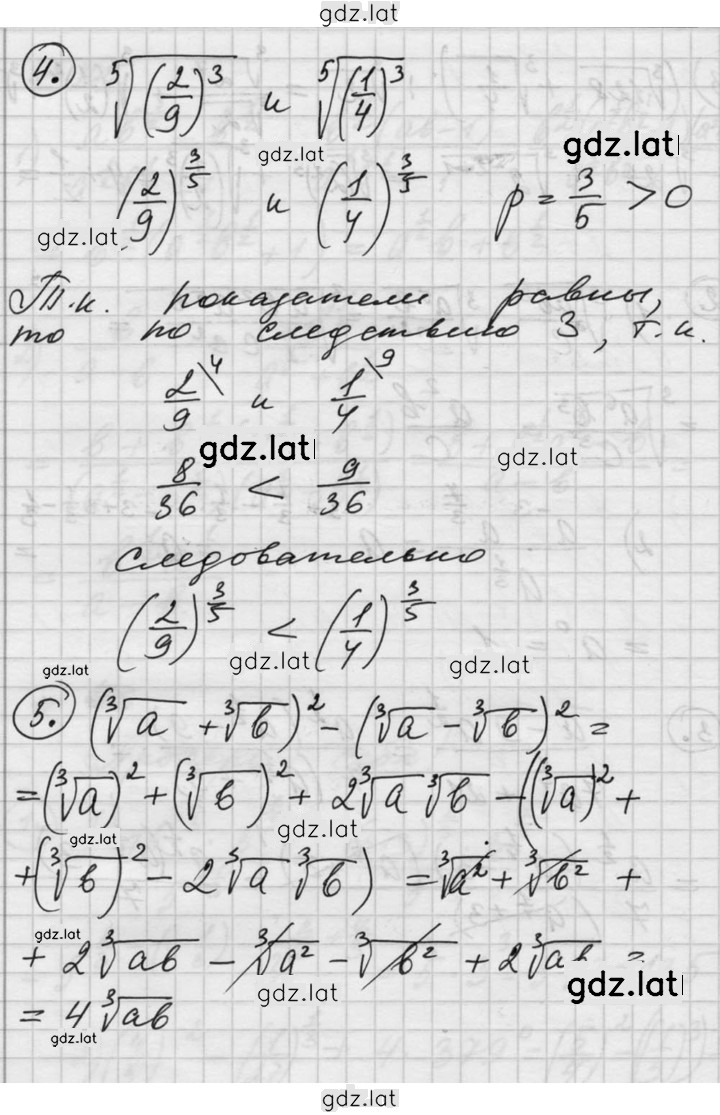 gdz.lat
4. ⁵√(2/9)³ и ⁵√(1/4)³
gdz.lat gdz.lat
(2/9)^(3/5) и (1/4)^(3/5) p = 3/5 > 0
gdz.lat
Т.к. показатели равны,
то по следствию 3, т.к.
2/9 \4 и 1/4 \9
gdz.lat gdz.lat
8/36 < 9/36
следовательно
(2/9)^(3/5) < (1/4)^(3/5)
gdz.lat gdz.lat gdz.lat
5. (³√a + ³√b)² − (³√a − ³√b)² =
= (³√a)² + (³√b)² + 2³√a ³√b − ((³√a)² +
gdz.lat gdz.lat
+ (³√b)² − 2³√a ³√b) = ³√a² + ³√b² +
gdz.lat
+ 2³√ab − ³√a² − ³√b² + 2³√ab =
gdz.lat gdz.lat
= 4³√ab
gdz.lat
gdz.lat